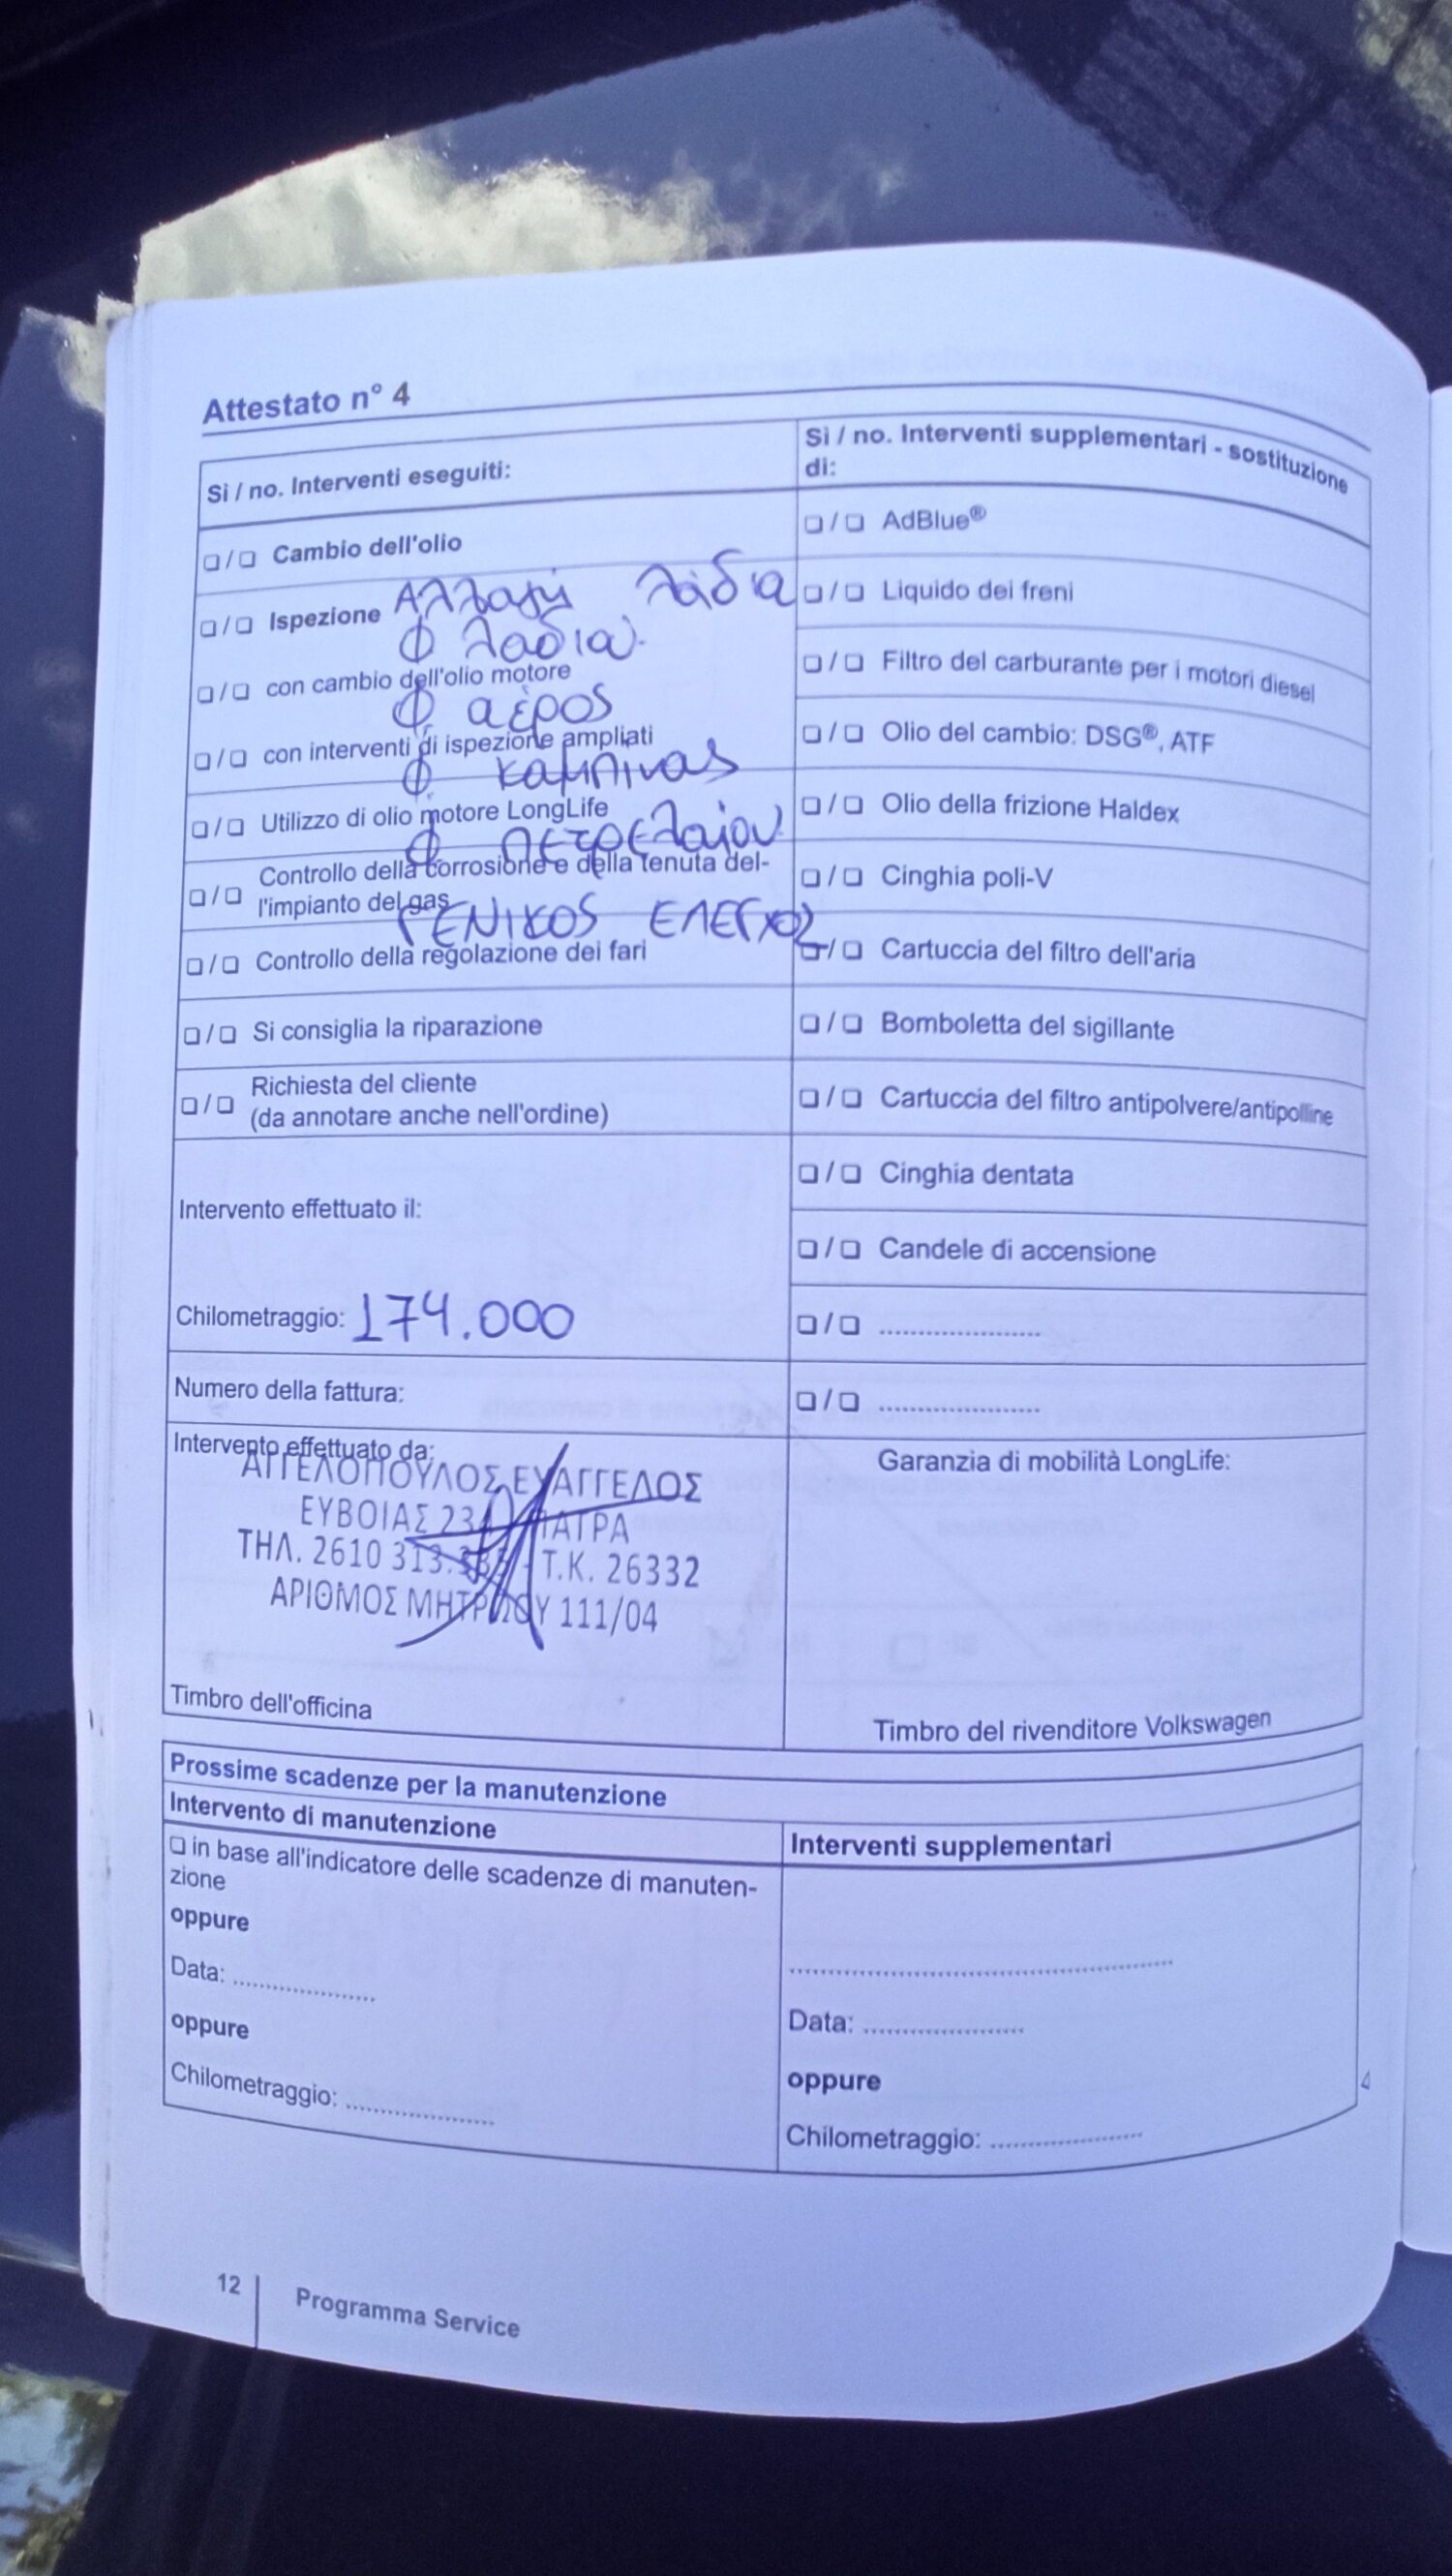 Attestato n° 4
Sì / no. Interventi eseguiti:
❑ / ❑ Cambio dell'olio
❑ / ❑ Ispezione Αλλαγή λάδια
Φ λαδιού
❑ / ❑ con cambio dell'olio motore
Φ αέρος
❑ / ❑ con interventi di ispezione ampliati
Φ καμπίνας
❑ / ❑ Utilizzo di olio motore LongLife
Φ πετρελαίου
❑ / ❑ Controllo della corrosione e della tenuta del-
l'impianto del gas
ΓΕΝΙΚΟΣ ΕΛΕΓΧΟΣ
❑ / ❑ Controllo della regolazione dei fari
❑ / ❑ Si consiglia la riparazione
❑ / ❑ Richiesta del cliente
(da annotare anche nell'ordine)
Intervento effettuato il:
Chilometraggio: 174.000
Numero della fattura:
Intervento effettuato da:
ΑΓΓΕΛΟΠΟΥΛΟΣ ΕΥΑΓΓΕΛΟΣ
ΕΥΒΟΙΑΣ ΠΑΤΡΑ
ΤΗΛ. 2610 Τ.Κ. 26332
ΑΡΙΘΜΟΣ ΜΗΤΡΩΟΥ 111/04
Timbro dell'officina
Sì / no. Interventi supplementari - sostituzione
di:
❑ / ❑ AdBlue®
❑ / ❑ Liquido dei freni
❑ / ❑ Filtro del carburante per i motori diesel
❑ / ❑ Olio del cambio: DSG®, ATF
❑ / ❑ Olio della frizione Haldex
❑ / ❑ Cinghia poli-V
❑ / ❑ Cartuccia del filtro dell'aria
❑ / ❑ Bomboletta del sigillante
❑ / ❑ Cartuccia del filtro antipolvere/antipolline
❑ / ❑ Cinghia dentata
❑ / ❑ Candele di accensione
❑ / ❑ ......................
❑ / ❑ ......................
Garanzia di mobilità LongLife:
Timbro del rivenditore Volkswagen
Prossime scadenze per la manutenzione
Intervento di manutenzione
❑ in base all'indicatore delle scadenze di manuten-
zione
oppure
Data: ....................
oppure
Chilometraggio: ....................
Interventi supplementari
......................................................
Data: ......................
oppure
Chilometraggio: ......................
12
Programma Service